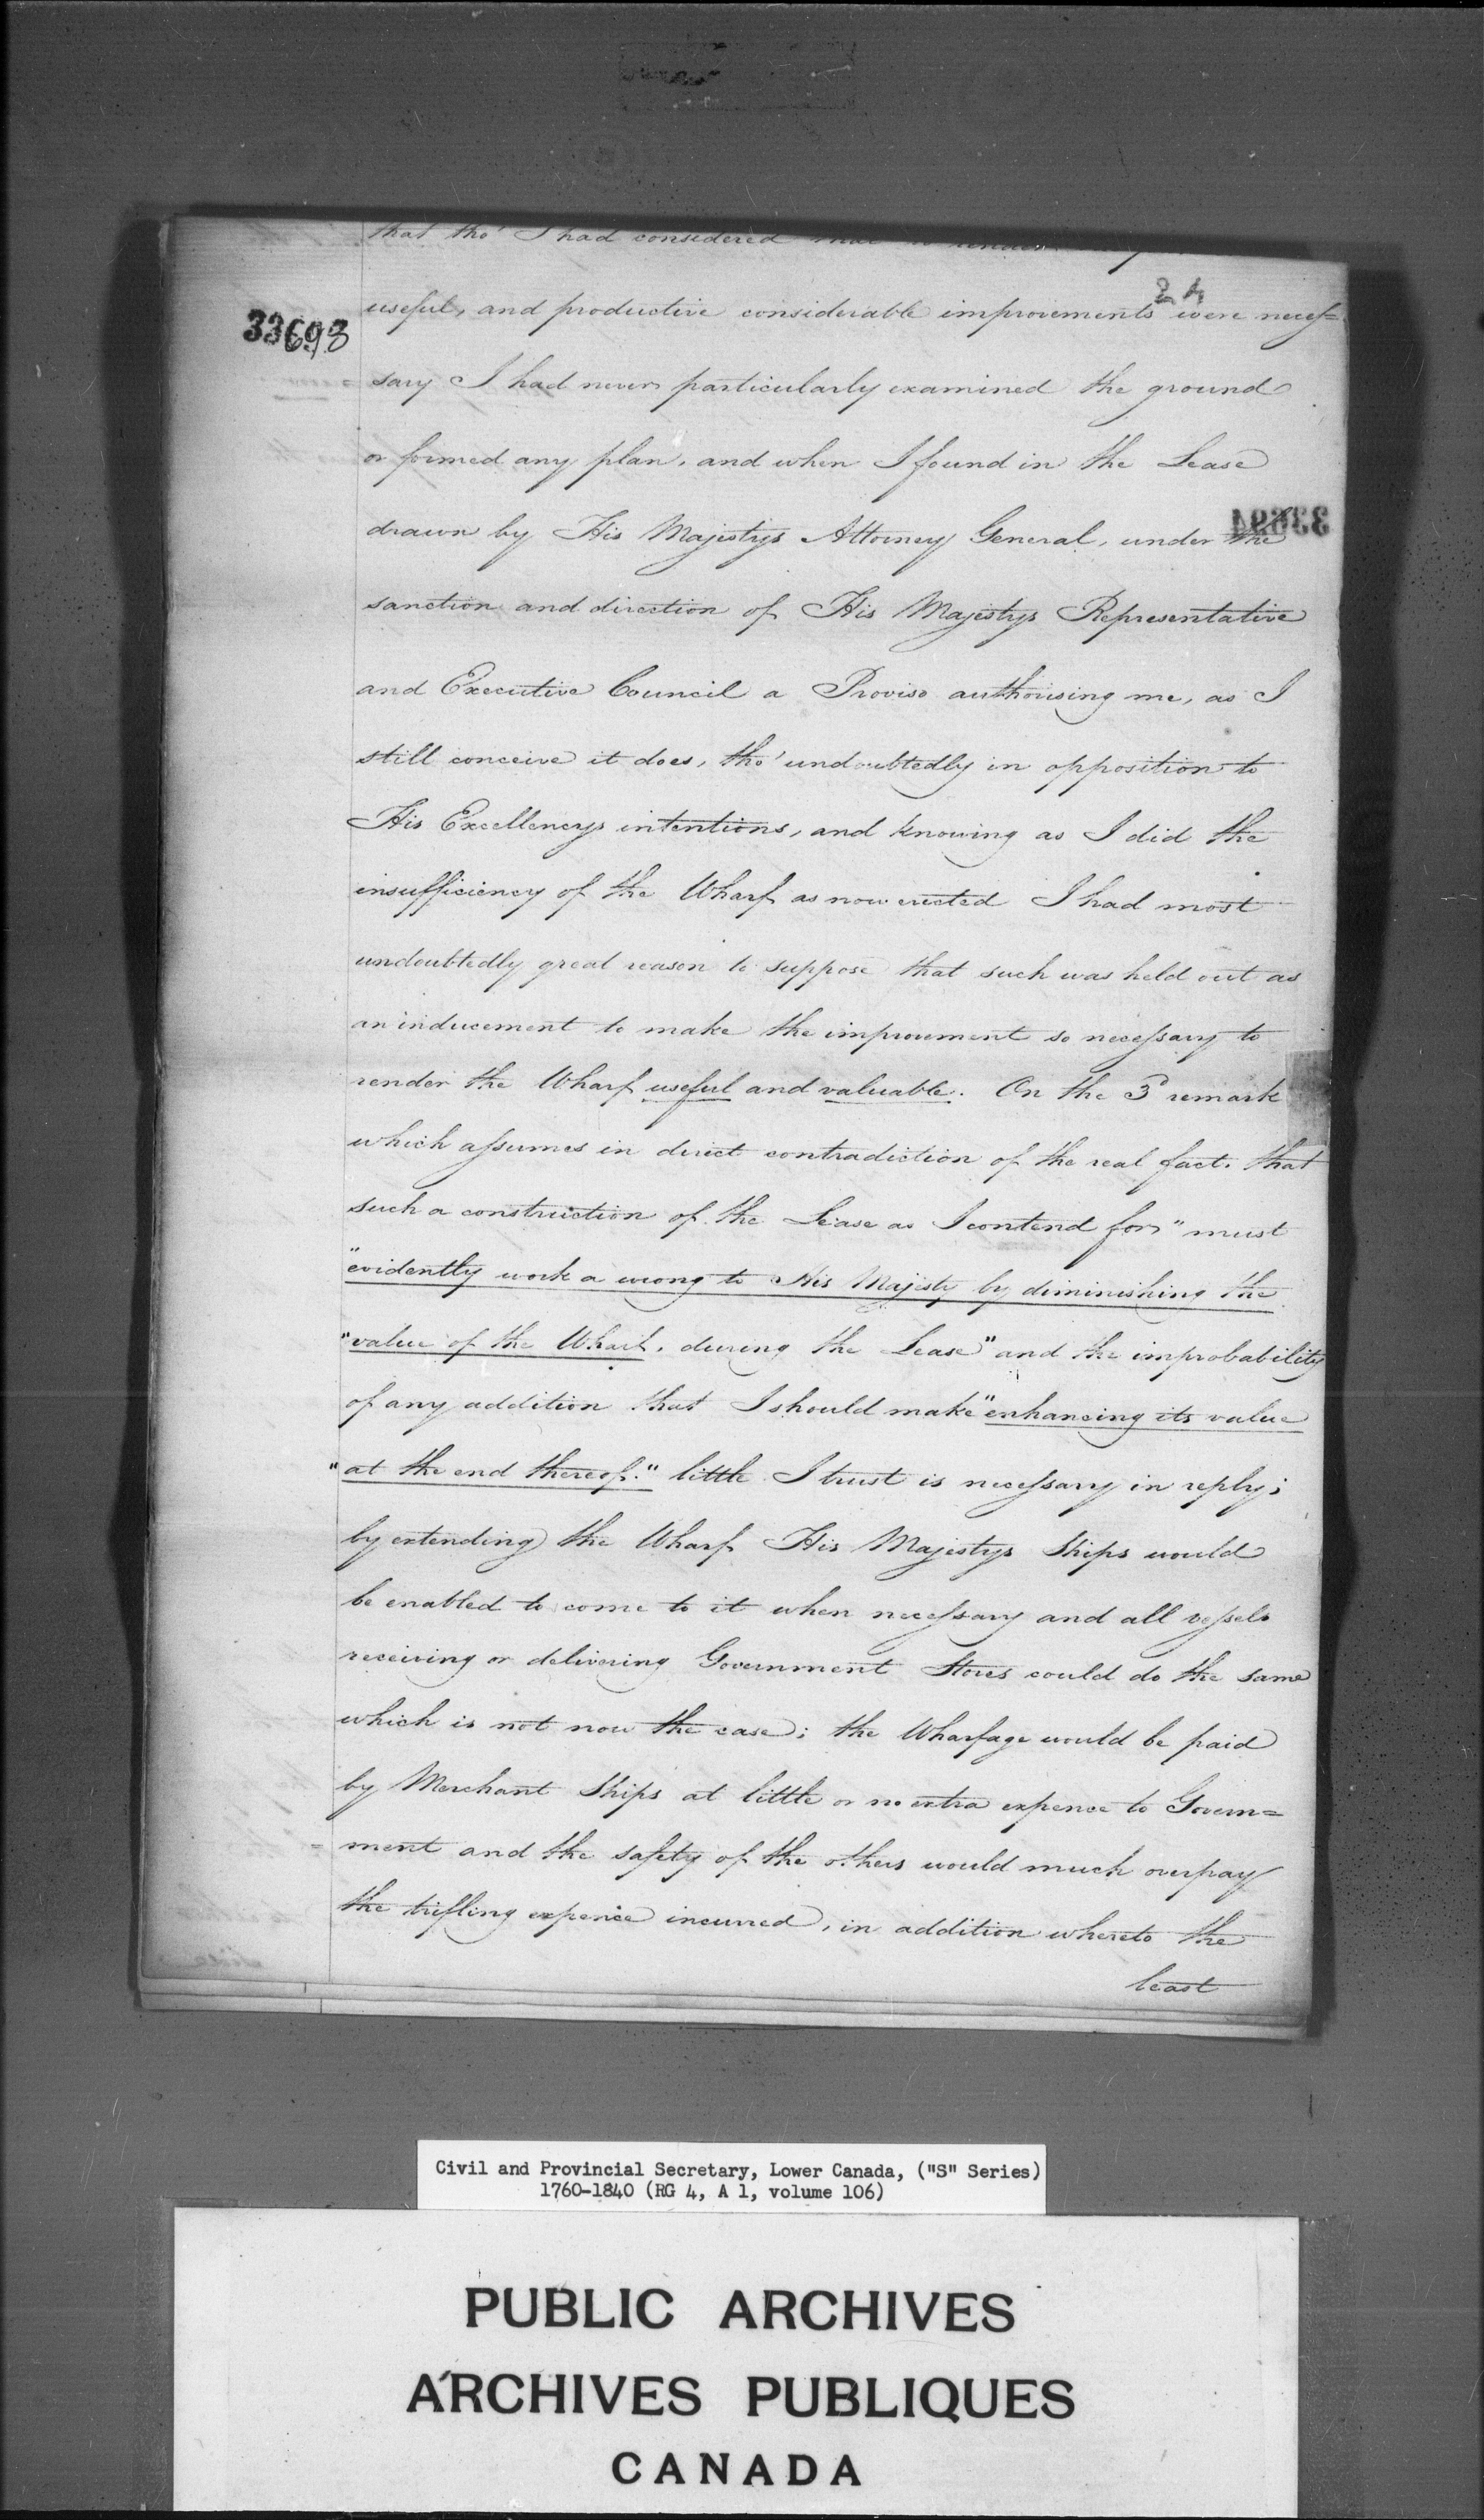 that tho' I had considered that to render
24
useful, and productive considerable improvements were neces=
33698
sary I had never particularly examined the ground
or formed any plan, and when I found in the Lease
33694
drawn by His Majestys Attorney General, under the
sanction and direction of His Majestys Representative
and Executive Council a Proviso authorising me, as I
still conceive it does, tho' undoubtedly in opposition to
His Excellencys intentions, and knowing as I did the
insufficiency of the Wharf as now erected I had most
undoubtedly great reason to suppose that such was held out as
an inducement to make the improvement so necessary to
render the Wharf useful and valuable. On the 3d remark
which assumes in direct contradiction of the real fact, that
such a construction of the Lease as I contend for "must
"evidently work a wrong to His Majesty by diminishing the
"value of the Wharf, during the Lease" and the improbability
of any addition that I should make "enhancing its value
"at the end thereof." little I trust is necessary in reply;
by extending the Wharf His Majestys Ships would
be enabled to come to it when necessary and all vessels
receiving or delivering Government Stores could do the same
which is not now the case; the Wharfage would be paid
by Merchant Ships at little or no extra expence to Govern=
=ment and the safety of the others would much overpay
the trifling expence incurred, in addition whereto the
least
Civil and Provincial Secretary, Lower Canada, ("S" Series)
1760-1840 (RG 4, A 1, volume 106)
PUBLIC ARCHIVES
ARCHIVES PUBLIQUES
CANADA